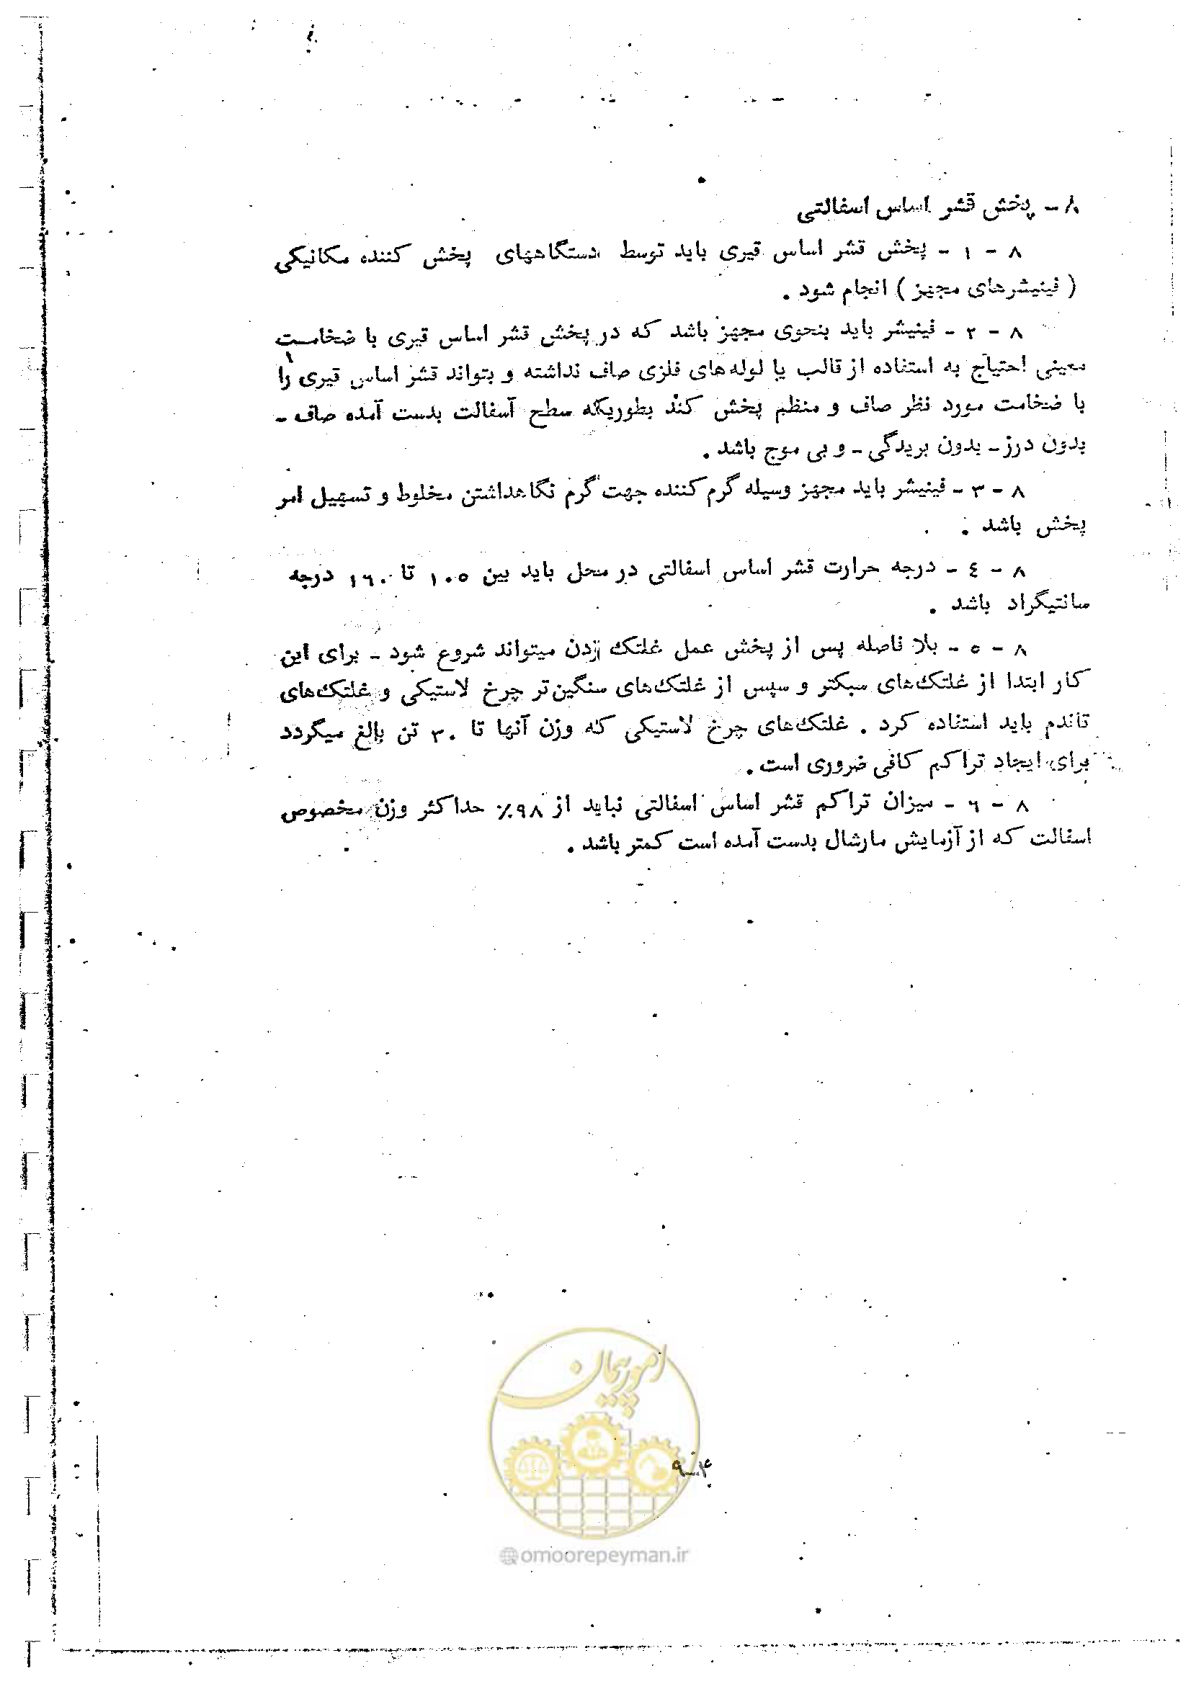 ۸ – پخش قشر اساس اسفالتی
۸ – ۱ – پخش قشر اساس قیری باید توسط دستگاههای پخش کننده مکانیکی
( فینیشرهای مجهز ) انجام شود .
۸ – ۲ – فینیشر باید بنحوی مجهز باشد که در پخش قشر اساس قیری با ضخامت
معینی احتیاج به استفاده از قالب یا لوله‌های فلزی صاف نداشته و بتواند قشر اساس قیری را
با ضخامت مورد نظر صاف و منظم پخش کند بطوریکه سطح آسفالت بدست آمده صاف –
بدون درز – بدون بریدگی – و بی موج باشد .
۸ – ۳ – فینیشر باید مجهز وسیله گرم کننده جهت گرم نگاهداشتن مخلوط و تسهیل امر
پخش باشد .
۸ – ٤ – درجه حرارت قشر اساس اسفالتی در محل باید بین ۱۰۵ تا ۱۶۰ درجه
سانتیگراد باشد .
۸ – ۵ – بلا فاصله پس از پخش عمل غلتک زدن میتواند شروع شود – برای این
کار ابتدا از غلتک‌های سبکتر و سپس از غلتک‌های سنگین‌تر چرخ لاستیکی و غلتک‌های
تاندم باید استفاده کرد . غلتک‌های چرخ لاستیکی که وزن آنها تا ۳۰ تن بالغ میگردد
برای ایجاد تراکم کافی ضروری است .
۸ – ۶ – میزان تراکم قشر اساس اسفالتی نباید از ۹۸٪ حداکثر وزن مخصوص
اسفالت که از آزمایش مارشال بدست آمده است کمتر باشد .
امور پیمان
۹–۴
omoorepeyman.ir